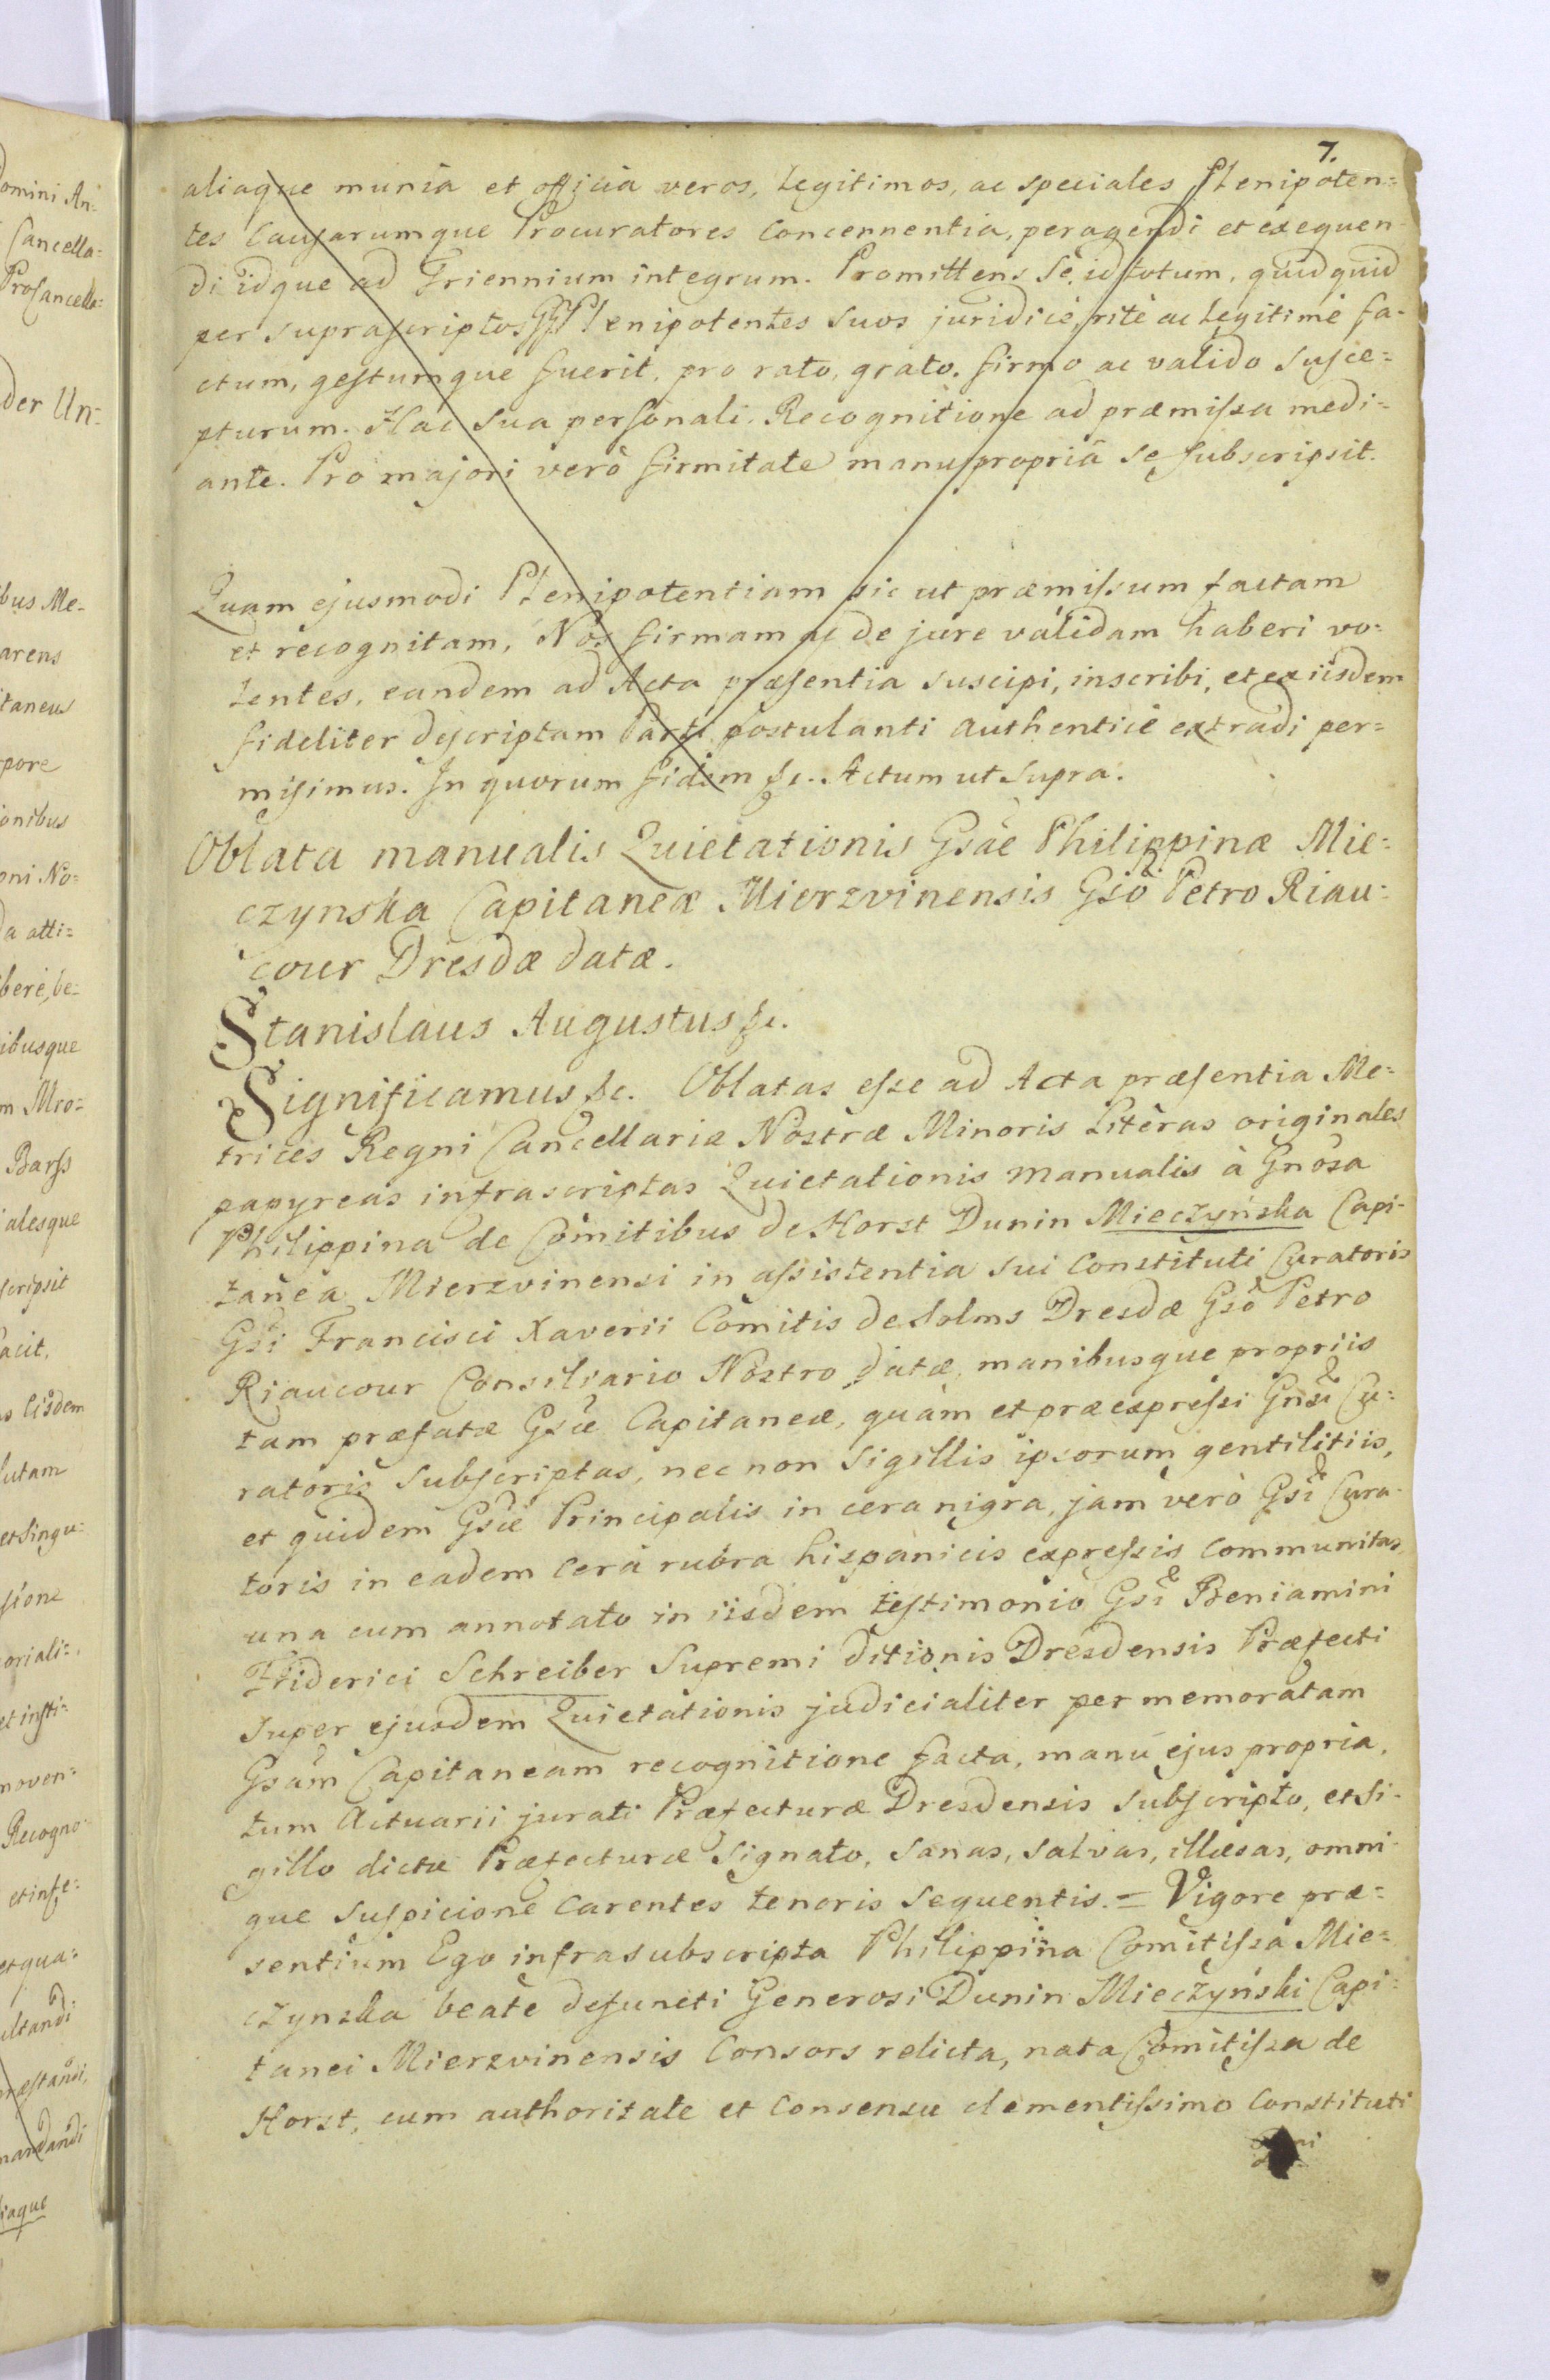 7.
aliaque munia et officia veros, Legitimos, ac speciales Plenipoten=
tes Causarumque Procuratores Concernentia, peragendi et exequen-
di idque ad Triennium integrum. Promittens Se, id totum, quidquid
per suprascriptos Plenipotentes suos juridicè, ritè ac Legitimè fa-
ctum, gestumque fuerit, pro rato, grato, firmo ac valido susce=
pturum. Hac Sua personali Recognitione ad præmissa medi=
ante. Pro majori verò firmitate manu propriâ se subscripsit.
Quam ejusmodi Plenipotentiam sic ut præmissum factam
et recognitam, Nos firmam ac de jure validam haberi vo-
lentes, eandem ad Acta præsentia suscipi, inscribi, et ex iisdem
fideliter descriptam Parti postulanti authenticè extradi per=
misimus. In quorum fidem &c. Actum ut Supra.
Oblata manualis Quietationis Gsae Philippinæ Mie=
czynska Capitaneæ Mierzvinensis Gso Petro Riau=
cour Dresdæ datæ.
Stanislaus Augustus &c.
Significamus &c. Oblatas esse ad Acta præsentia Me=
trices Regni Cancellariæ Nostræ Minoris Literas originales
papyreas infrascriptas Quietationis manualis à Gnosa
Philippina de Comitibus de Horst Dunin Mieczyńska Capi-
tanea Mierzvinensi in assistentia sui Constituti Curatoris
Gsi Francisci Xaverii Comitis de Solms Dresdæ Gso Petro
Riaucour Consiliario Nostro datæ, manibusque propriis
tam præfatæ Gsæ Capitaneæ, quàm et præexpressi Gnsi Cu=
ratoris subscriptas, nec non Sigillis ipsorum gentilitiis,
et quidem Gsæ Principalis in cera nigra, jam verò Gsi Cura-
toris in eadem cerâ rubra hispanicis expressis communitas
una cum annotato in iisdem testimonio Gsi Beniamini
Friderici Schreiber Supremi ditionis Dresdensis Præfecti
super ejusdem Quietationis judicialiter per memoratam
Gsam Capitaneam recognitione facta, manu ejus propria,
tum Actuarii jurati Præfecturæ Dresdensis Subscripto, et Si-
gillo dictæ Præfecturæ Signato, Sanas, salvas, illæsas, omni-
que suspicione Carentes tenoris Sequentis. = Vigore præ=
sentium Ego infrasubscripta Philippina Comitissa Mie=
czynska beatè defuncti Generosi Dunin Mieczyński Capi=
tanei Mierzvinensis Consors relicta, nata Comitissa de
Horst, cum authoritate et Consensu clementissimo Constituti